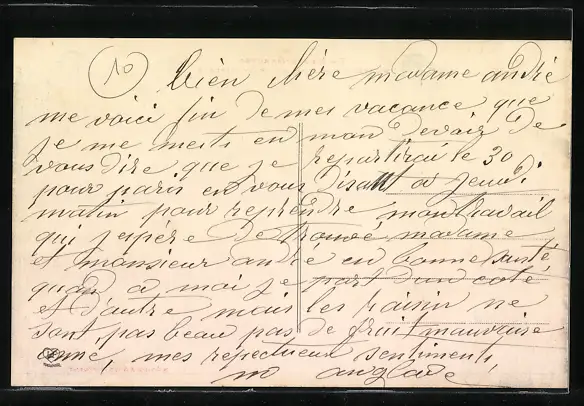 10
bien chère madame andré
me voici fin de mes vacance que
je me mests en mon devoir de
vous dire que je repartirai le 30
pour paris en vous disant a jeudi
matin pour reprendre mon travail
qui j'espère de trouvé madame
et monsieur andré en bonne santé,
quand a moi je part d'un coté
et d'autre mais les raisin ne
sont pas beau pas de fruit mauvaise
anné, mes respectueux sentiments,
m anglade